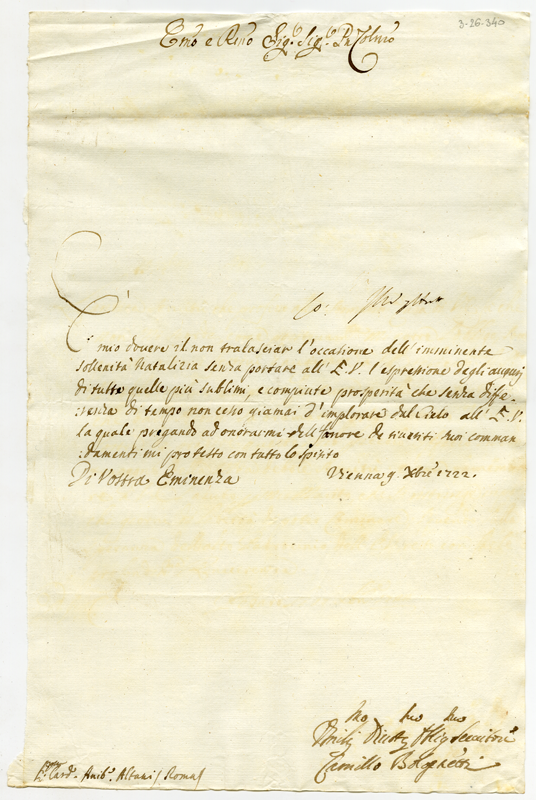 3-26-340
Emo e Rmo Sig.r Sig.r Pn Colmo
È mio dovere il non tralasciar l'occatione dell'imminente
sollenità Natalizia senza portare all'E.V. l'espresione degli augurj
di tutte quelle più sublimi, e compiute prosperità che senza diffe
:renza di tempo non cesso giamai d'implorare dal Cielo all'E.V.
la quale pregando ad onorarmi dell'honore de riveriti suoi comman
:damenti mi protesto con tutto lo spirito
Di Vostra Eminenza Vienna 9. Xbre 1722.
Humil. Divot. Oblig. Servitore
Camillo Bolognetti
Card. Anib. Albani / Roma /